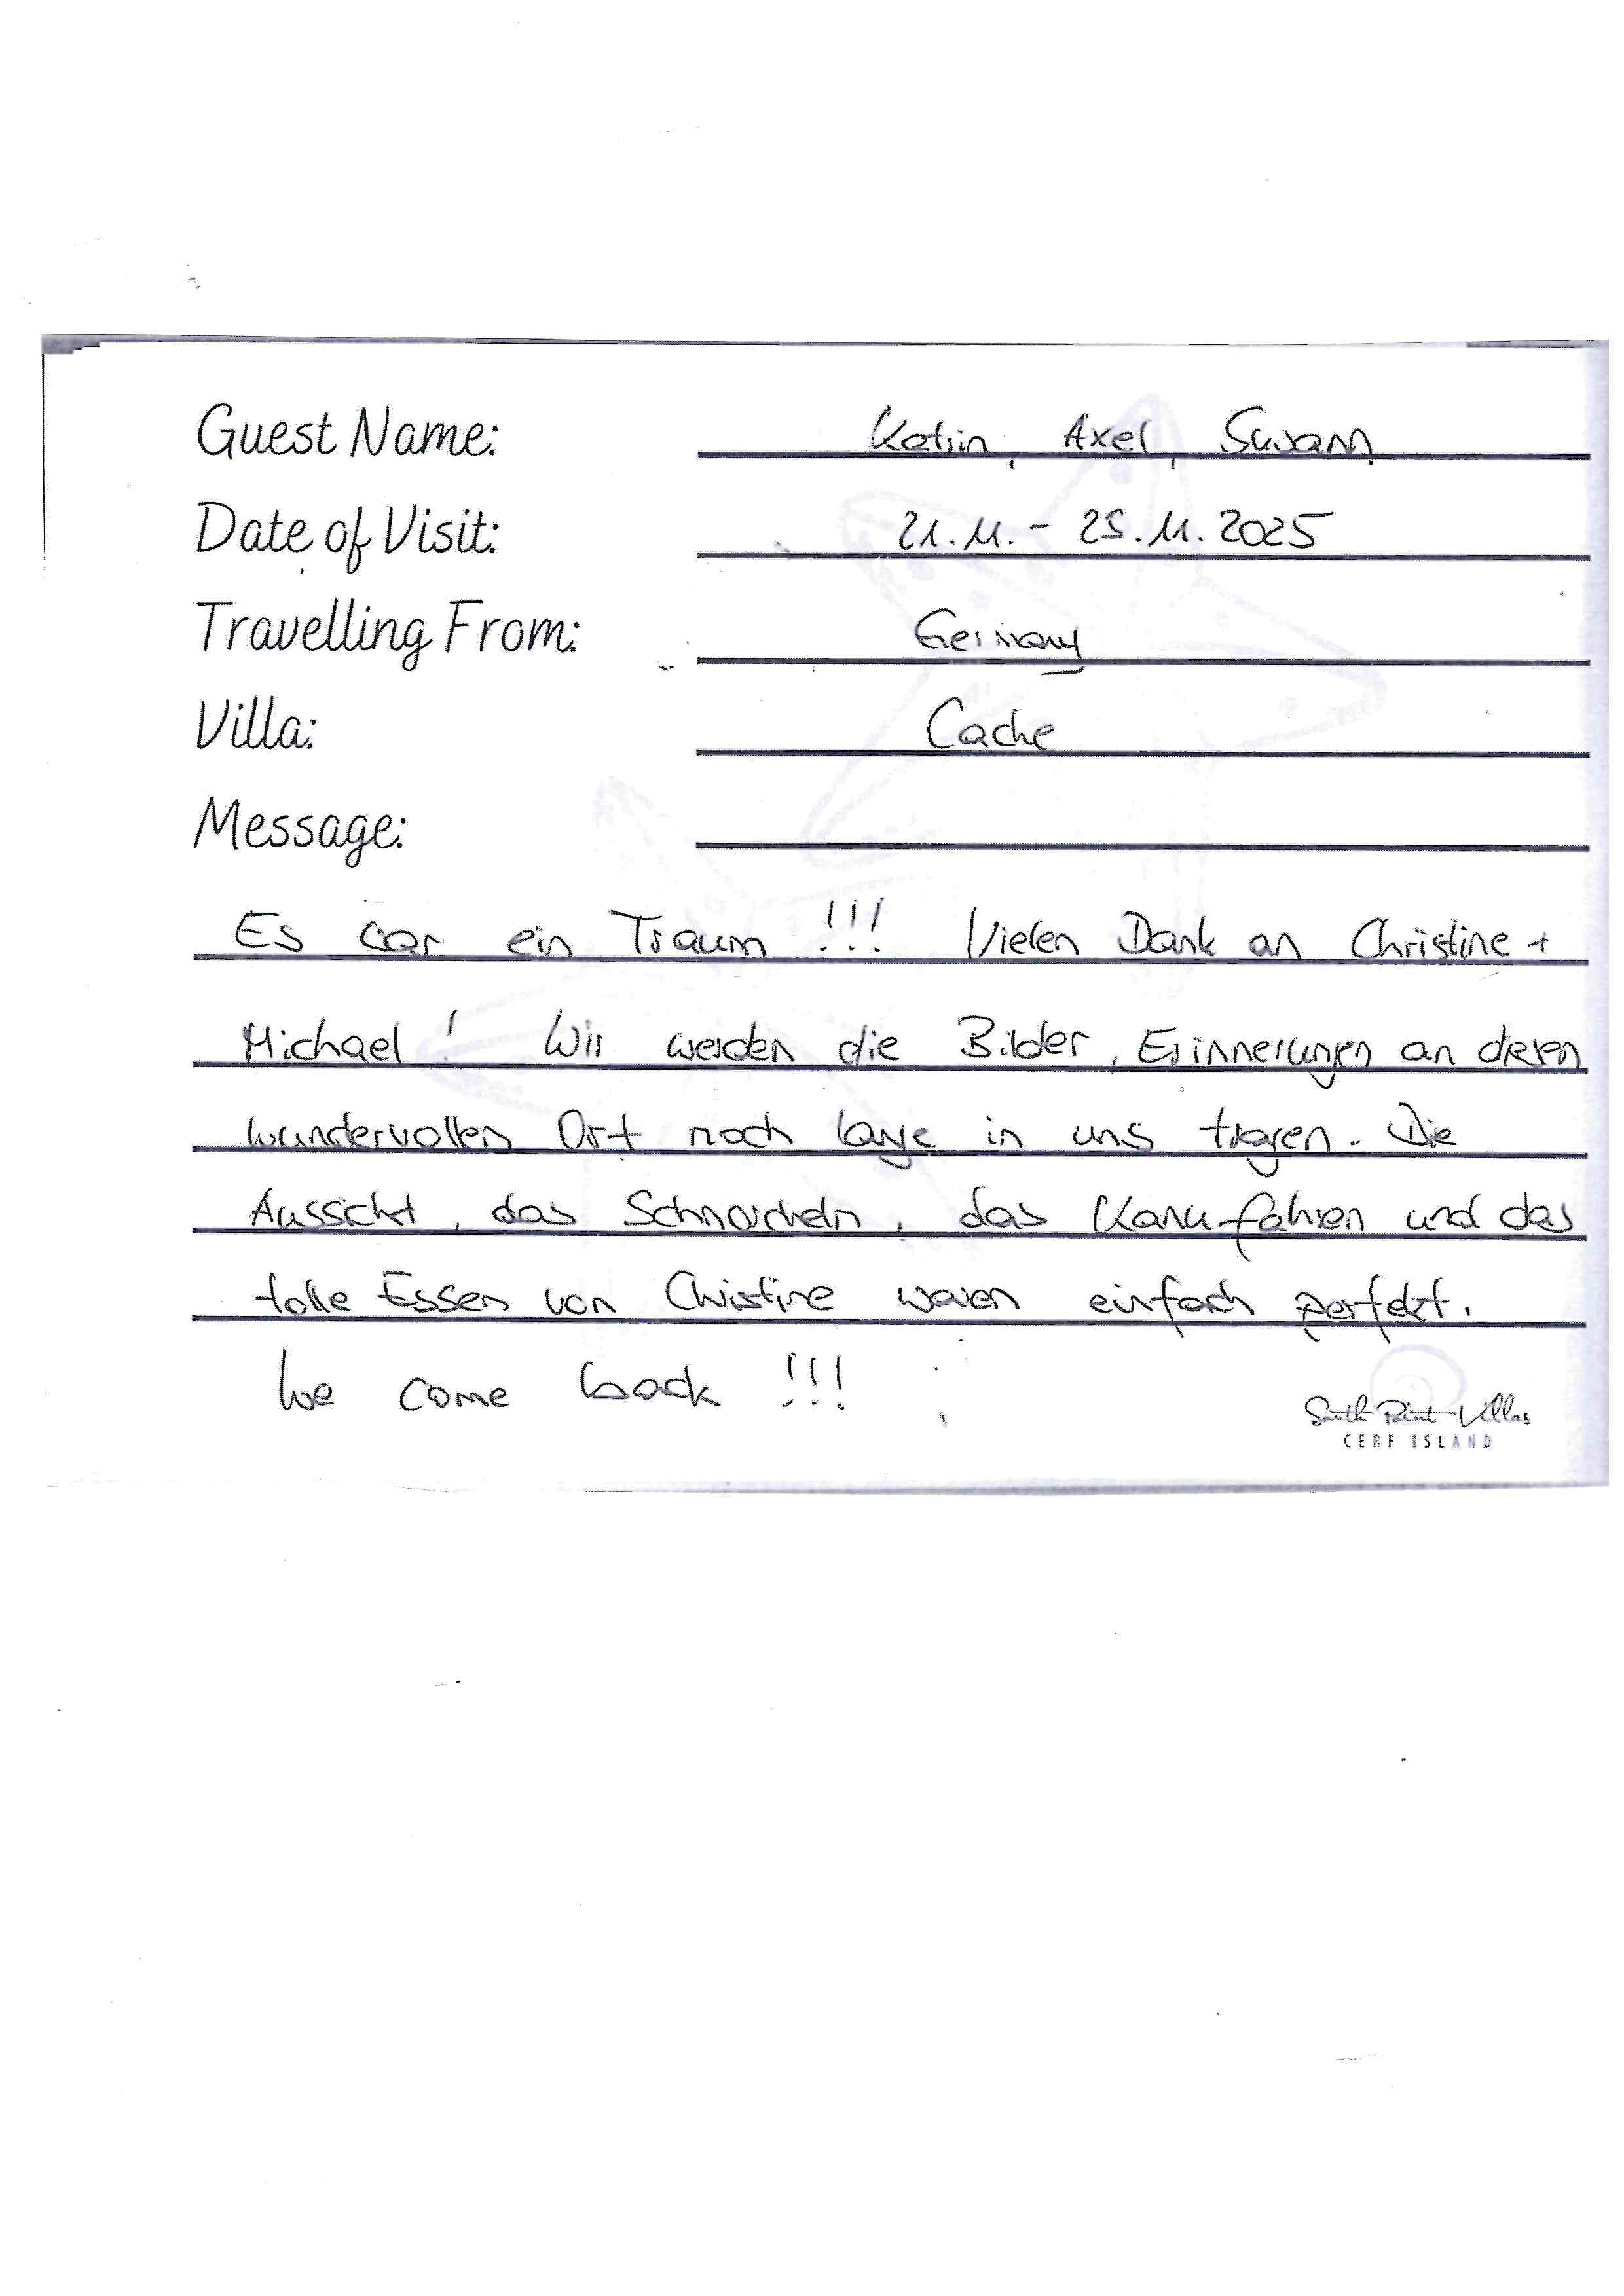 Guest Name: Katrin, Axel, Susann
Date of Visit: 21.11. - 25.11.2025
Travelling From: Germany
Villa: Cache
Message:
Es war ein Traum !!! Vielen Dank an Christine +
Michael ! Wir werden die Bilder, Erinnerungen an diesen
wundervollen Ort noch lange in uns tragen. Die
Aussicht, das Schnorcheln, das Kanufahren und das
tolle Essen von Christine waren einfach perfekt.
We come back !!!
South Point Villas
CERF ISLAND